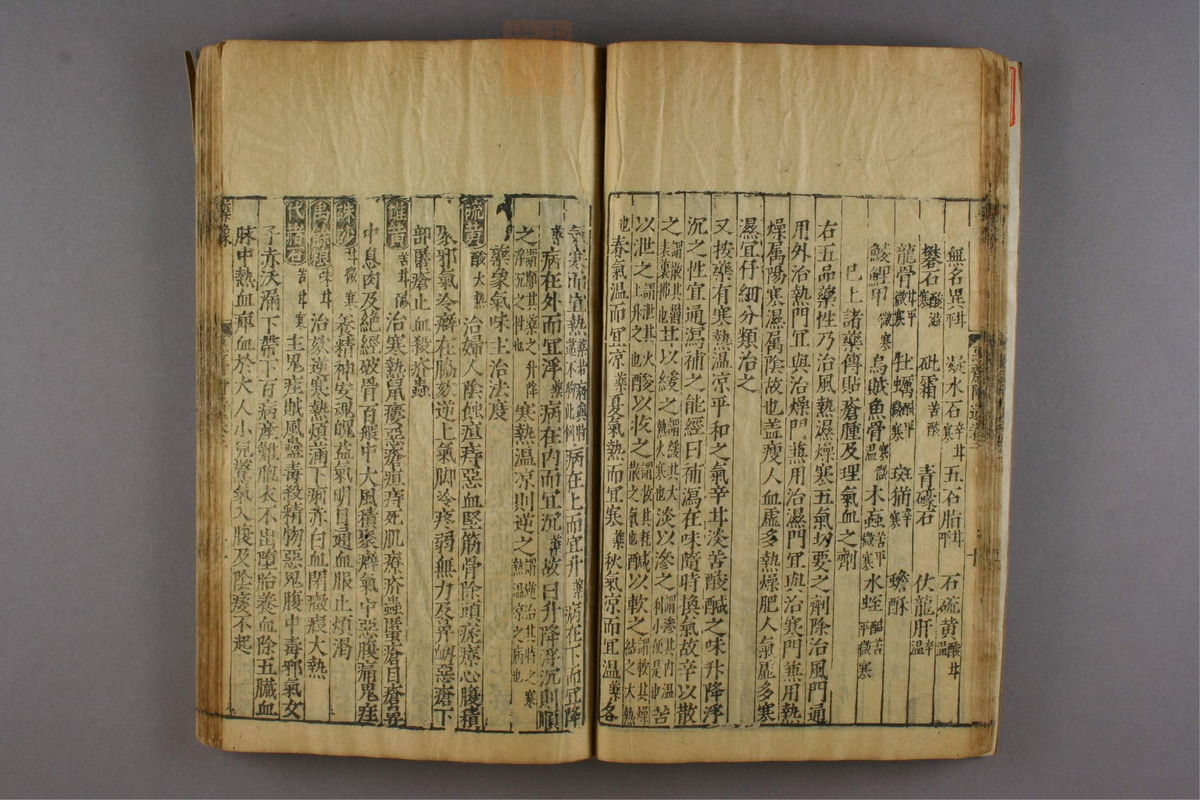 無名異甘平 凝水石辛甘 五石脂甘平 石硫黄酸甘
礬石酸澁寒 砒霜苦酸 青礞石 伏龍肝辛溫
龍骨甘平微寒 牡蠣鹹平微寒 斑猫辛寒 蟾酥
鯪鯉甲微寒 烏賊魚骨寒微溫 木䖟苦平微寒 水蛭鹹苦平微寒
已上諸藥傳貼瘡腫及理氣血之劑
右五品藥性乃治風熱濕燥寒五氣切要之劑除治風門通
用外治熱門宜與治燥門兼用治濕門宜與治寒門兼用熱
燥属陽寒濕属陰故也盖瘦人血虛多熱燥肥人氣虛多寒
濕宜仔細分類治之
又按藥有寒熱溫凉平和之氣辛甘淡苦酸鹹之味升降浮
沉之性宜通瀉補之能經曰補瀉在味隨時換氣故辛以散
之謂散其表裏怫鬱也甘以緩之謂緩其大熱大寒也淡以滲之謂滲其内溫利小便是也苦
以泄之謂泄其上升之火也酸以收之謂收其耗散之氣也鹹以軟之謂軟其燥結之大熱
也春氣溫而宜凉藥夏氣熱而宜寒藥秋氣凉而宜溫藥冬
氣寒而宜熱藥病在上而宜升藥病在下而宜降
藥病在外而宜浮藥病在内而宜沉藥故曰升降浮沉則順
之謂順其藥之升降浮沉之性也寒熱溫凉則逆之謂治其時之寒熱溫凉之病也
藥象氣味主治法度
硫黄酸大熱 治婦人陰蝕疽痔惡血堅筋骨除頭瘡療心腹積
聚邪氣冷癖在脇欬逆上氣脚冷疼弱無力及鼻衂惡瘡下
部䘌瘡止血殺疥蟲
雄黄苦甘微 治寒熱鼠瘻惡瘡疽痔死肌療疥蟲䘌瘡目瘡鼻
中息肉及絶經破骨百節中大風積聚癖氣中惡腹痛鬼疰
硃砂甘微寒 養精神安魂魄益氣明目通血脉止煩渴
禹餘粮味甘寒 治欬逆寒熱煩滿下痢赤白血閉癥瘕大熱
代赭石苦甘寒 主鬼疰賊風蠱毒殺精物惡鬼腹中毒邪氣女
子赤沃漏下帶下百病産難胞衣不出墮胎養血除五臟血
脉中熱血痺血瘀大人小兒驚氣入腹及陰痿不起